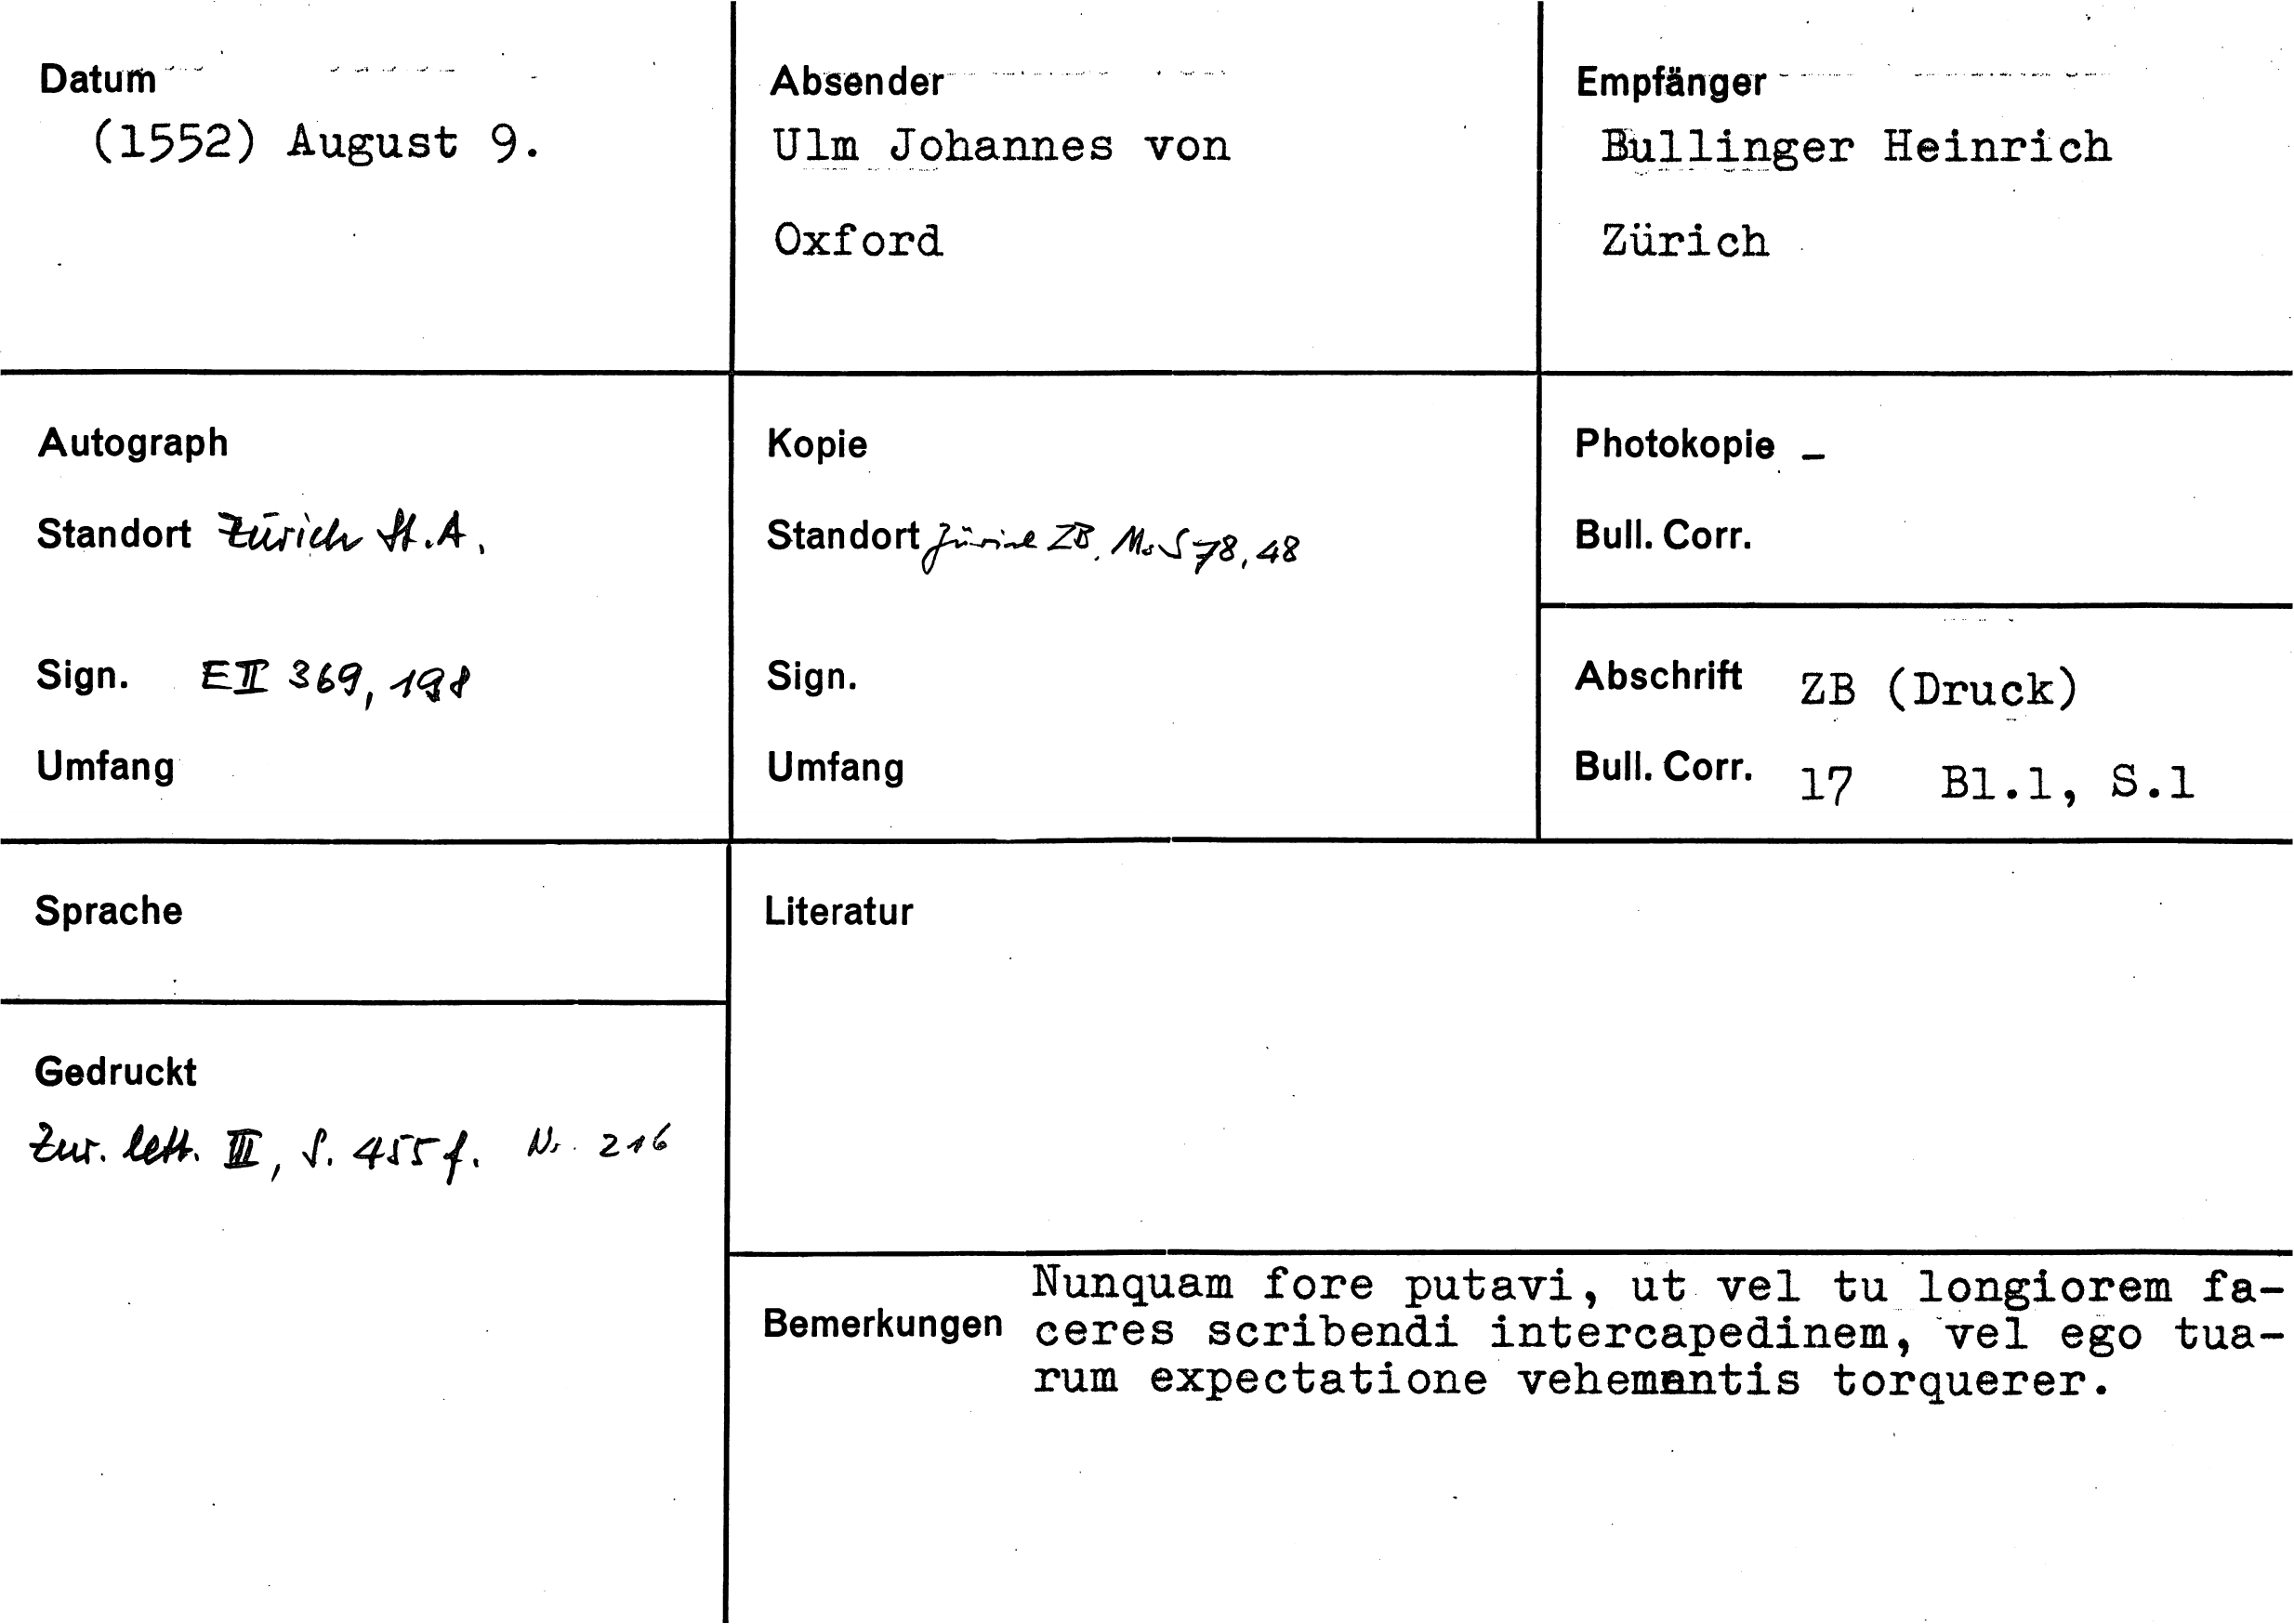 Datum
(1552) August 9.
Absender
Ulm Johannes von
Oxford
Empfänger
Bullinger Heinrich
Zürich
Autograph
Standort Zürich St.A.
Sign. E II 369, 198
Umfang
Kopie
Standort Zürich ZB. Ms S 78, 48
Sign.
Umfang
Photokopie –
Bull. Corr.
Abschrift ZB (Druck)
Bull. Corr. 17 Bl.1, S.1
Sprache
Literatur
Gedruckt
Zur. lett. III, S. 455 f. Nr. 216
Bemerkungen
Nunquam fore putavi, ut vel tu longiorem fa-
ceres scribendi intercapedinem, vel ego tua-
rum expectatione vehemantis torquerer.